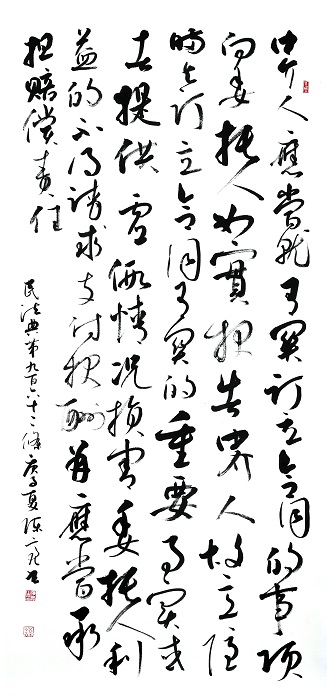 中介人應當就有関订立合同的事項
向委托人如實报告中介人故意隐
瞒与订立合同有関的重要事实或
者提供虚假情况损害委托人利
益的不得請求支付报酬并應當承
担赔償責任
民法典第九百六十二條庚子夏陈